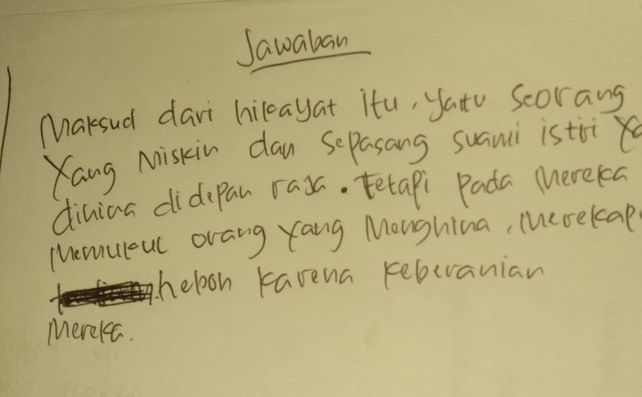 Jawaban
Maksud dari hikayat itu, yaitu seorang
yang miskin dan sepasang suami istri
dihina didepan raja. tetapi pada mereka
memukul orang yang menghina, merekap
heboh karena keberanian
mereka.